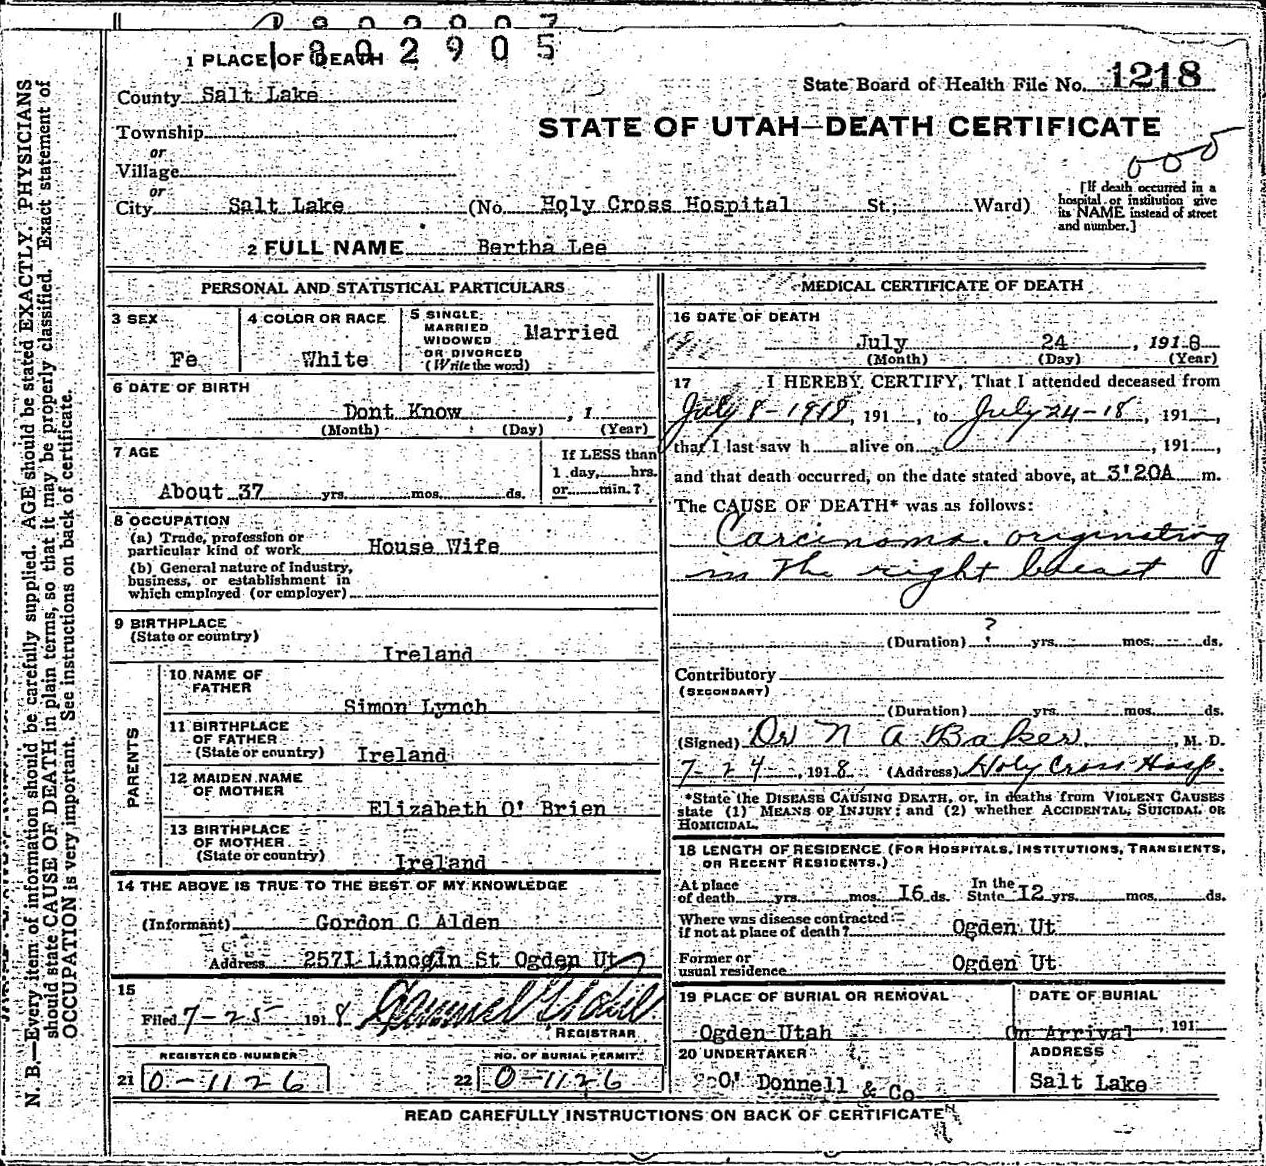 1802905
1 PLACE OF DEATH
State Board of Health File No. 1218
County Salt Lake
STATE OF UTAH—DEATH CERTIFICATE
Township
or
Village
or
City Salt Lake (No. Holy Cross Hospital St.; Ward)
[If death occurred in a
hospital or institution give
its NAME instead of street
and number.]
2 FULL NAME Bertha Lee
PERSONAL AND STATISTICAL PARTICULARS
3 SEX
Fe
4 COLOR OR RACE
White
5 SINGLE,
MARRIED
WIDOWED
OR DIVORCED
(Write the word)
Married
6 DATE OF BIRTH
Dont Know , 1
(Month) (Day) (Year)
7 AGE
About 37 yrs. mos. ds.
If LESS than
1 day, hrs.
or min.?
8 OCCUPATION
(a) Trade, profession or
particular kind of work House Wife
(b) General nature of industry,
business, or establishment in
which employed (or employer)
9 BIRTHPLACE
(State or country)
Ireland
PARENTS
10 NAME OF
FATHER
Simon Lynch
11 BIRTHPLACE
OF FATHER
(State or country) Ireland
12 MAIDEN NAME
OF MOTHER
Elizabeth O' Brien
13 BIRTHPLACE
OF MOTHER
(State or country)
Ireland
14 THE ABOVE IS TRUE TO THE BEST OF MY KNOWLEDGE
(Informant) Gordon C Alden
Address 2571 Lincoln St Ogden Ut
15
Filed 7-25 1918
REGISTRAR
REGISTERED NUMBER
21 0-1126
NO. OF BURIAL PERMIT
22 0-1126
MEDICAL CERTIFICATE OF DEATH
16 DATE OF DEATH
July 24, 1918
(Month) (Day) (Year)
17 I HEREBY CERTIFY, That I attended deceased from
July 8-1918, 191 , to July 24-18, 191 ,
that I last saw h alive on , 191 ,
and that death occurred, on the date stated above, at 3'20A m.
The CAUSE OF DEATH* was as follows:
Carcinoma. originating
in the right breast
(Duration) ? yrs. mos. ds.
Contributory
(SECONDARY)
(Duration) yrs. mos. ds.
(Signed) Dr N A Baker, M. D.
7-24, 1918 (Address) Holy Cross Hosp.
*State the DISEASE CAUSING DEATH, or, in deaths from VIOLENT CAUSES
state (1) MEANS OF INJURY; and (2) whether ACCIDENTAL, SUICIDAL OR
HOMICIDAL.
18 LENGTH OF RESIDENCE (FOR HOSPITALS, INSTITUTIONS, TRANSIENTS,
OR RECENT RESIDENTS.)
At place
of death yrs. mos. 16 ds. In the
State 12 yrs. mos. ds.
Where was disease contracted
if not at place of death? Ogden Ut
Former or
usual residence Ogden Ut
19 PLACE OF BURIAL OR REMOVAL
Ogden Utah
DATE OF BURIAL
On Arrival, 191
20 UNDERTAKER
O' Donnell & Co
ADDRESS
Salt Lake
READ CAREFULLY INSTRUCTIONS ON BACK OF CERTIFICATE
N. B.—Every item of information should be carefully supplied. AGE should be stated EXACTLY. PHYSICIANS
should state CAUSE OF DEATH in plain terms, so that it may be properly classified. Exact statement of
OCCUPATION is very important. See instructions on back of certificate.